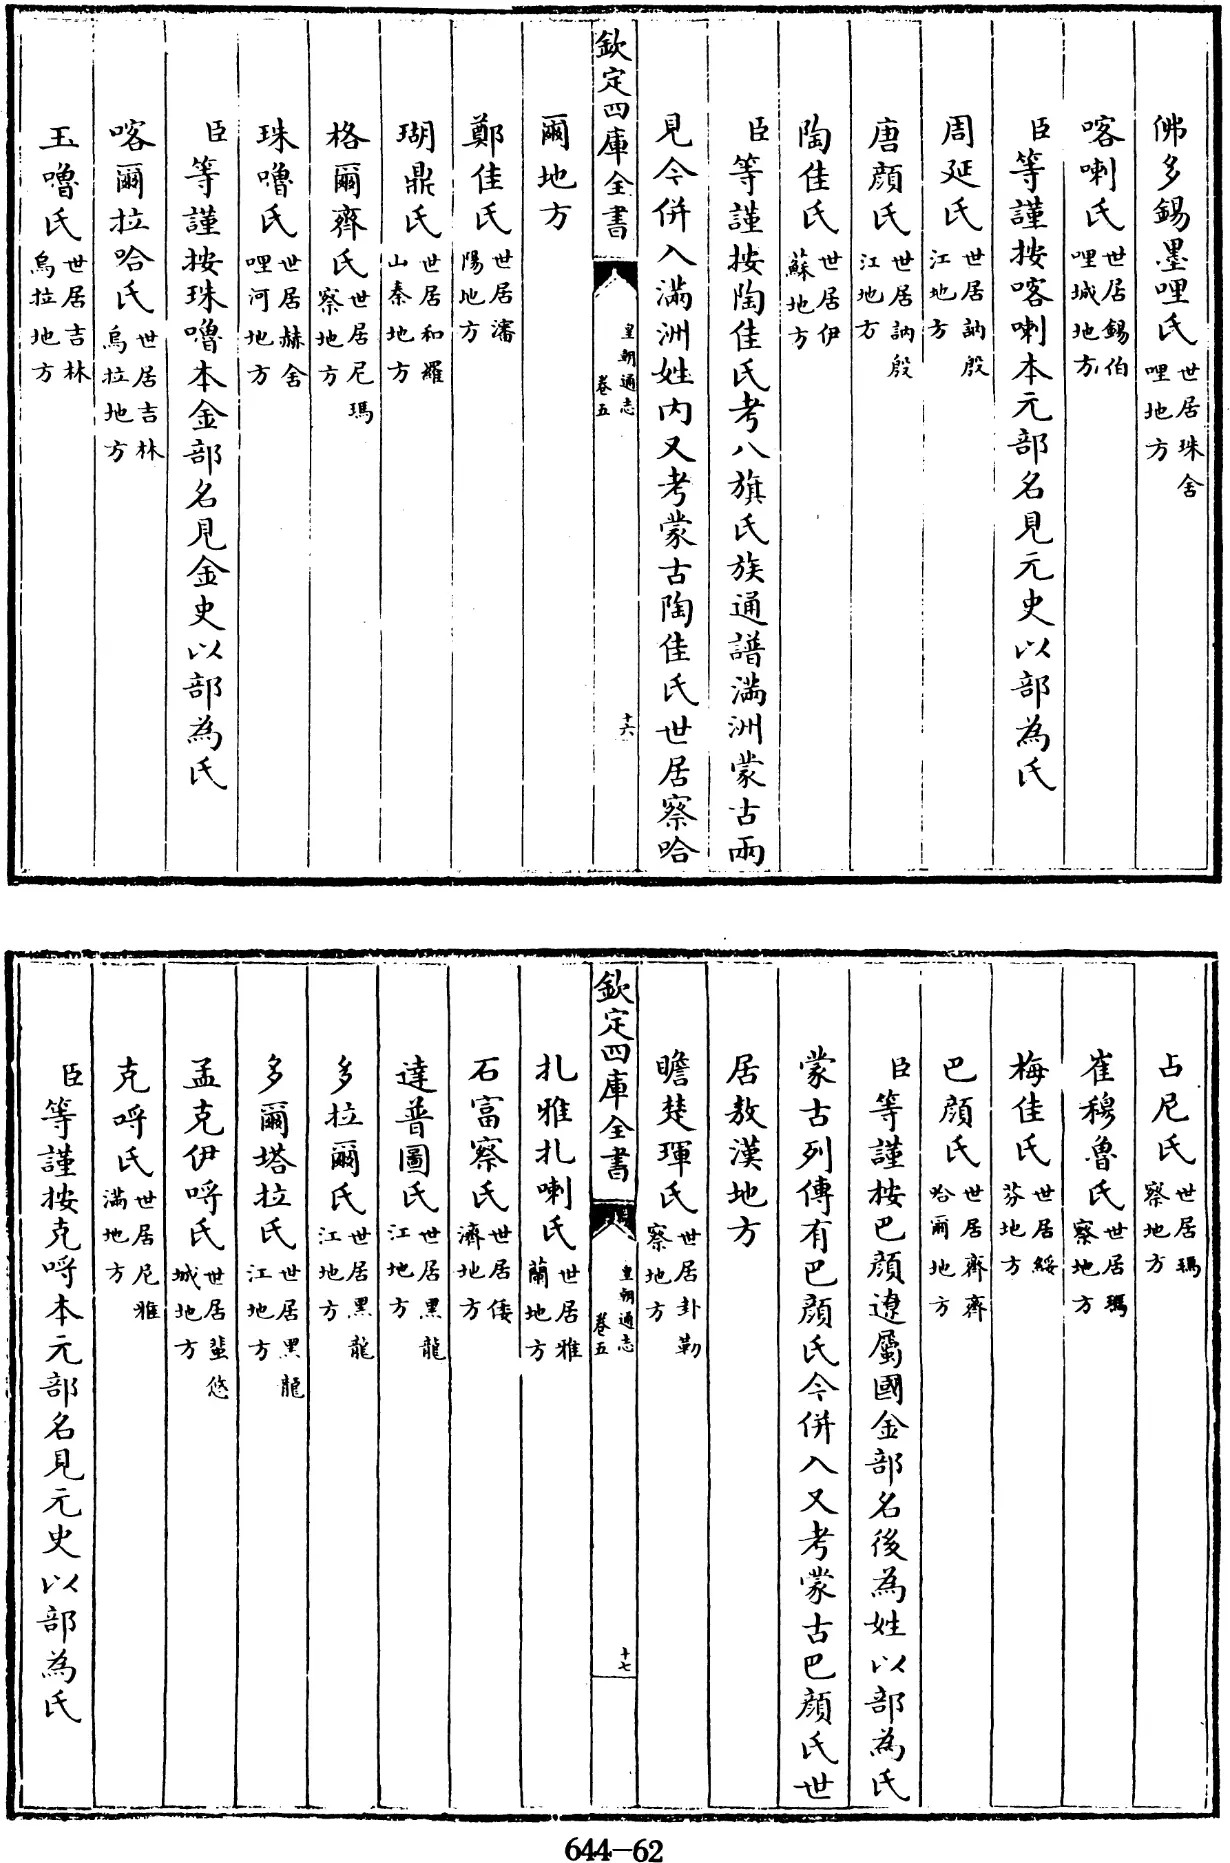 佛多錫墨哩氏世居珠舍哩地方
喀喇氏世居錫伯哩城地方
臣等謹按喀喇本元部名見元史以部為氏
周延氏世居訥殷江地方
唐顏氏世居訥殷江地方
陶佳氏世居伊蘇地方
臣等謹按陶佳氏考八旗氏族通譜滿洲蒙古兩
見今併入滿洲姓內又考蒙古陶佳氏世居察哈
欽定四庫全書 皇朝通志卷五 十六
爾地方
鄭佳氏世居瀋陽地方
瑚鼎氏世居和羅山秦地方
格爾齊氏世居尼瑪察地方
珠嚕氏世居赫舍哩河地方
臣等謹按珠嚕本金部名見金史以部為氏
喀爾拉哈氏世居吉林烏拉地方
玉嚕氏世居吉林烏拉地方
占尼氏世居瑪察地方
崔穆魯氏世居瑪察地方
梅佳氏世居綏芬地方
巴顏氏世居齊齊哈爾地方
臣等謹按巴顏遼屬國金部名後為姓以部為氏
蒙古列傳有巴顏氏今併入又考蒙古巴顏氏世
居敖漢地方
瞻楚琿氏世居卦勒察地方
欽定四庫全書 皇朝通志卷五 十七
扎雅扎喇氏世居雅蘭地方
石富察氏世居倭濟地方
達普圖氏世居黑龍江地方
多拉爾氏世居黑龍江地方
多爾塔拉氏世居黑龍江地方
孟克伊哷氏世居蜚悠城地方
克哷氏世居尼雅滿地方
臣等謹按克哷本元部名見元史以部為氏
644-62